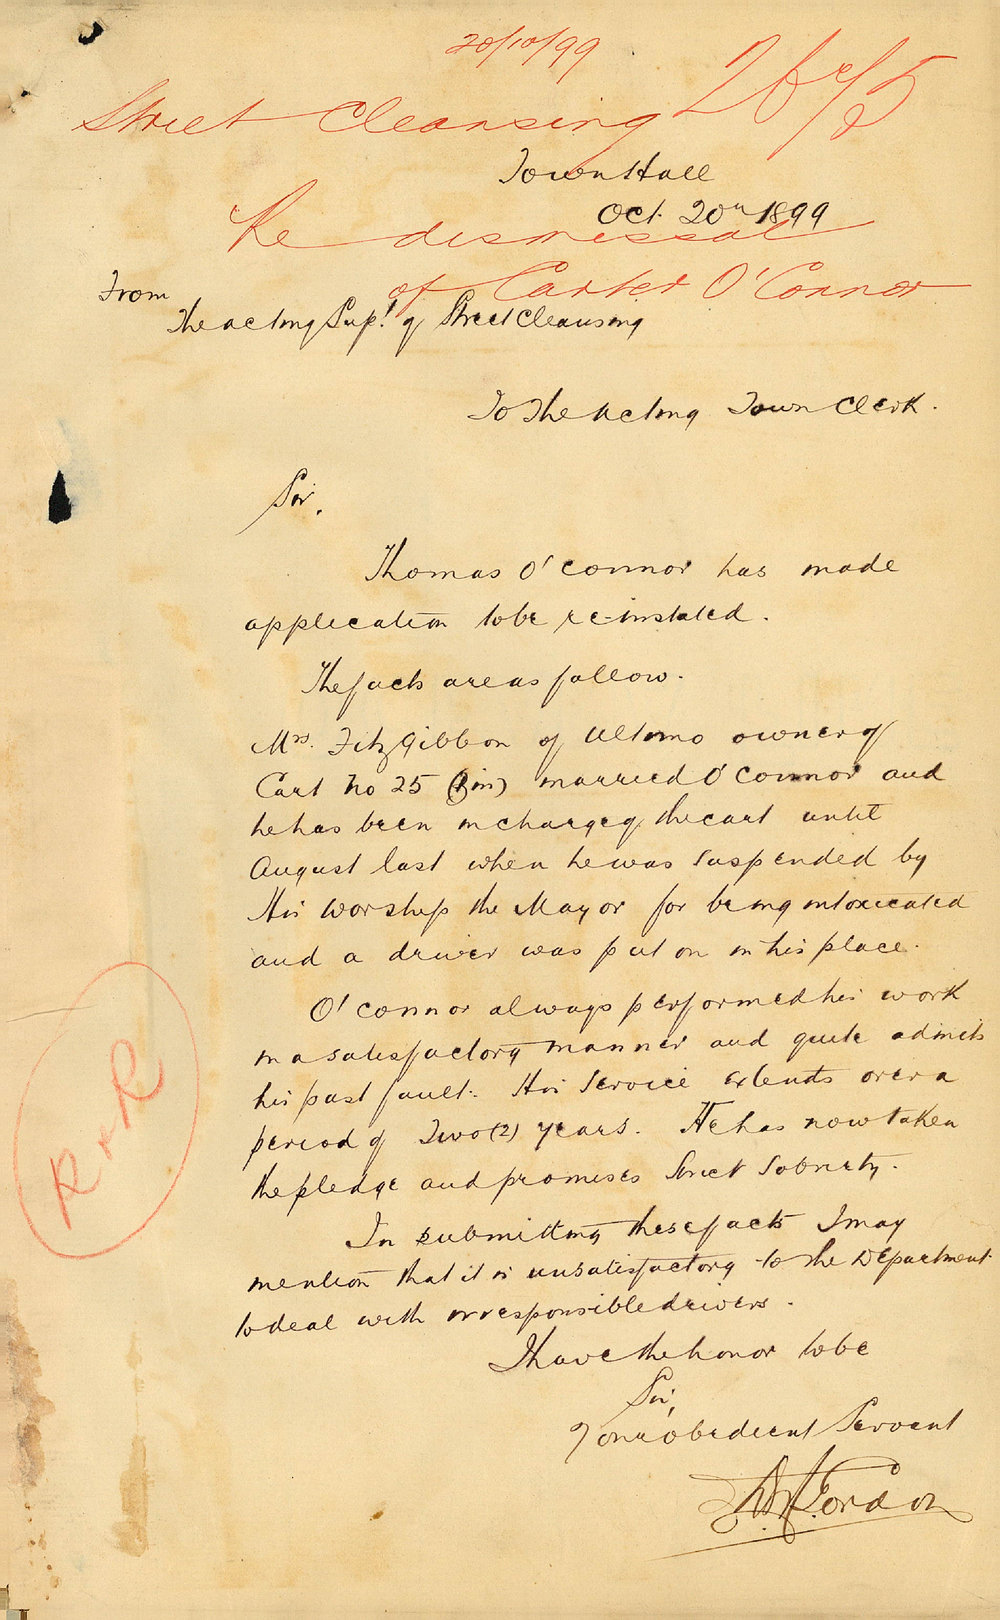 20/10/99
Street Cleansing
Town Hall
Oct. 20th 1899
Re dismissal
of Carter O'Connor
From
The acting Supt. of Street Cleansing
To The Acting Town Clerk.
Sir,
Thomas O'Connor has made
application to be re-instated.
The facts are as follow.
Mrs. FitzGibbon of Ultimo owner of
Cart No 25 married O'Connor and
he has been in charge of the cart until
August last when he was suspended by
His Worship the Mayor for being intoxicated
and a driver was put on in his place.
O'Connor always performed his work
in a satisfactory manner and quite admits
his past fault. His Service extends over a
period of Two (2) years. He has now taken
the pledge and promises Strict Sobriety.
In submitting these facts I may
mention that it is unsatisfactory to the Department
to deal with irresponsible drivers.
I have the honor to be
Sir,
Your obedient Servant
Gordon